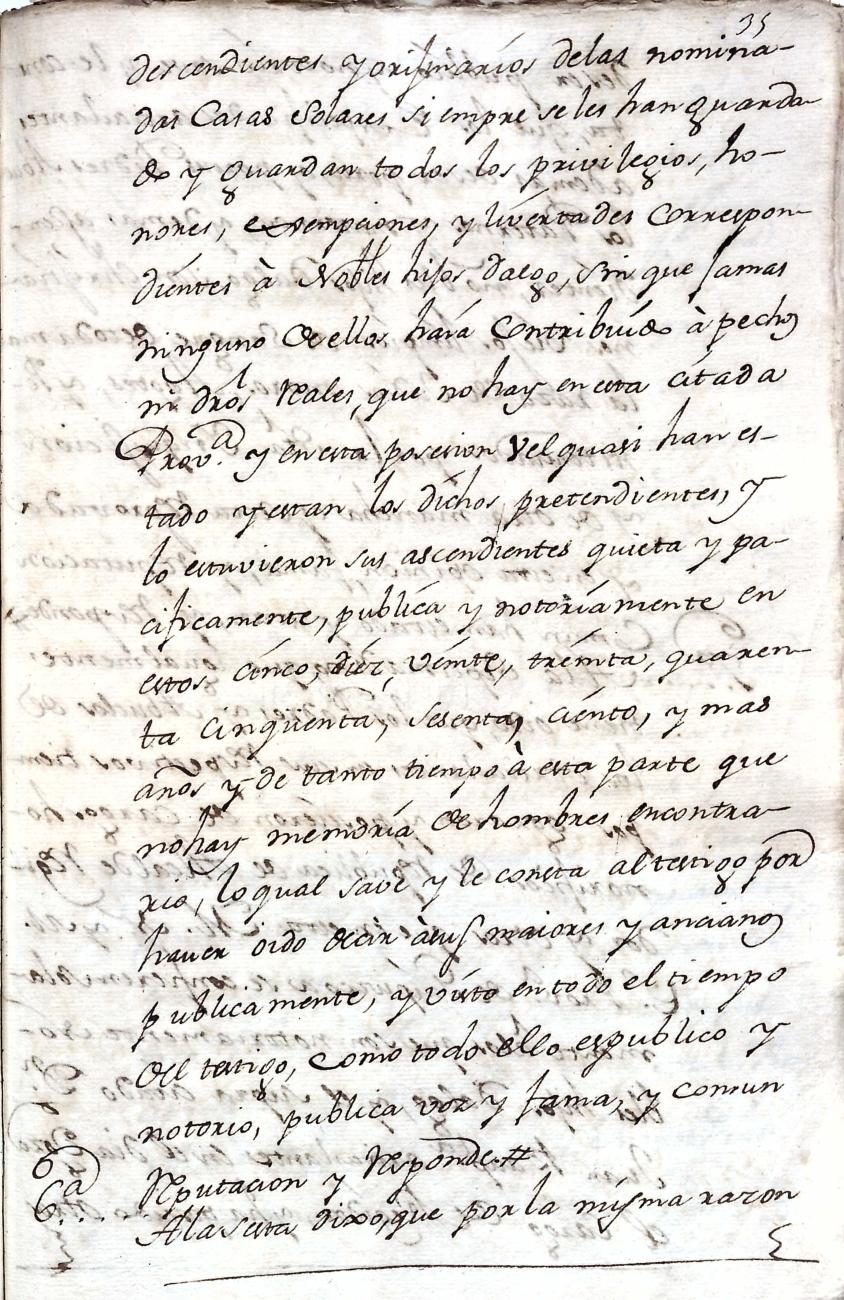 35
descendientes y orijinarios delas nomina-
das Casas Solares siempre seles han guarda-
do y guardan todos los privilegios, ho-
nores, exempciones, y livertades Correspon-
dientes à Nobles hijos dalgo, sin que Jamas
ninguno de ellos haía Contribuido à pechos
ni dros Reales, que no hay en esta citada
Prova. y en esta posesion velquasi han es-
tado y estan los dichos pretendientes, y
lo estuvieron sus ascendientes quieta y pa-
cificamente, publica y notoriamente en
estos cinco, diez, veinte, treinta, quaren-
ta cinqüenta, sesenta, ciento, y mas
años y de tanto tiempo à esta parte que
no hay memoria de hombres encontra-
rio, lo qual save y le consta al testigo por
haver oido decir àsus maiores y ancianos
publicamente, y visto en todo el tiempo
del testigo, como todo ello espublico y
notorio, publica voz y fama, y comun
Reputacion y Responde.#
6ª Ala sesta dixo, que por la misma razon